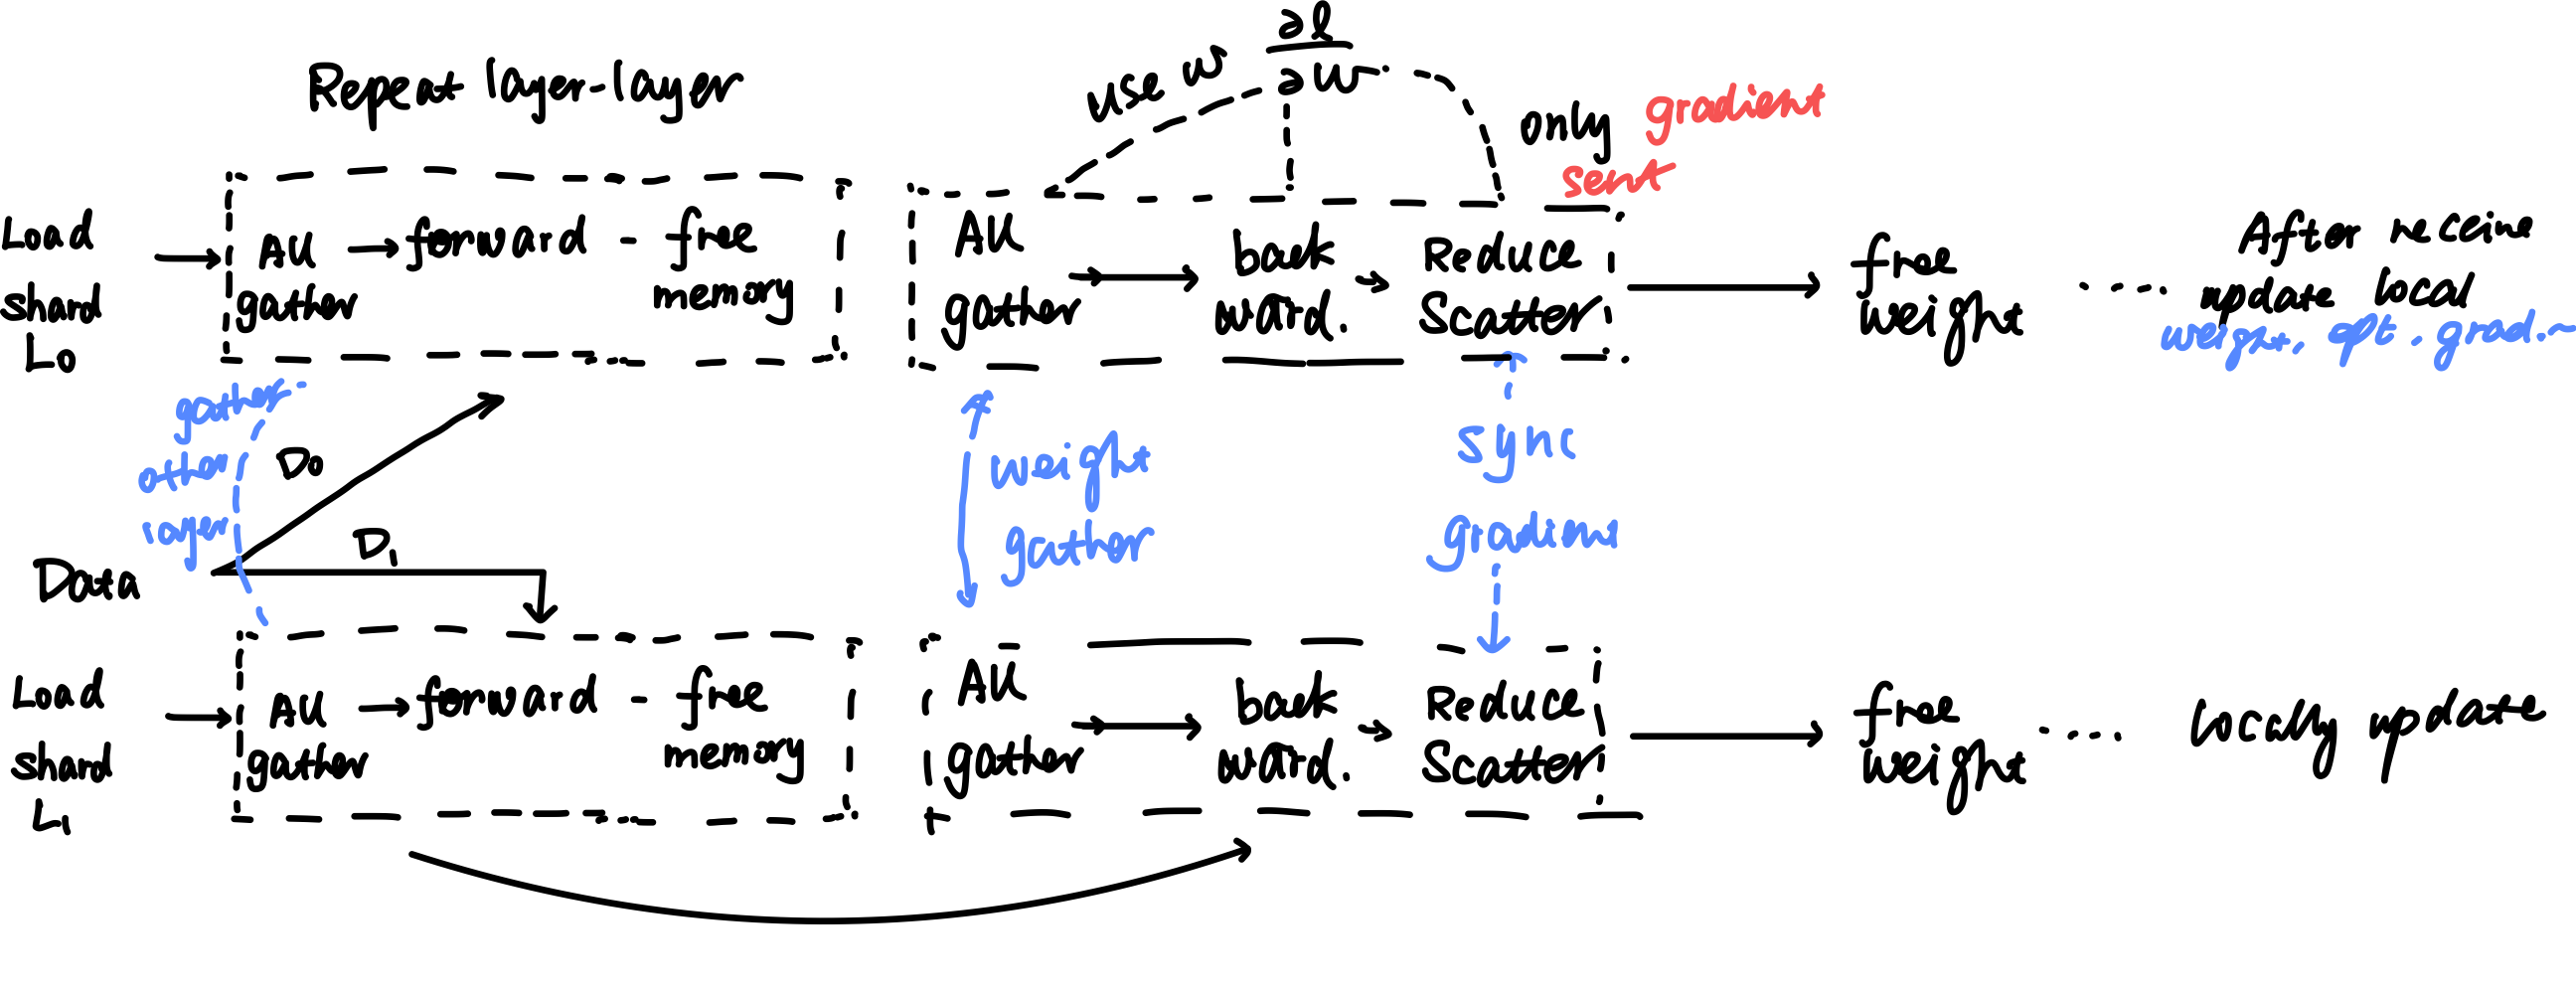 ∂l
use w
∂w
Repeat layer-layer
only gradient
sent
Load
shard
L0
All
gather
forward - free
memory
All
gather
back
ward.
Reduce
Scatter
free
weight
After receive
update local
weight, opt. grad. ~
gather
other
layer
D0
D1
Data
weight
gather
sync
gradient
Load
shard
L1
All
gather
forward - free
memory
All
gather
back
ward.
Reduce
Scatter
free
weight
locally update